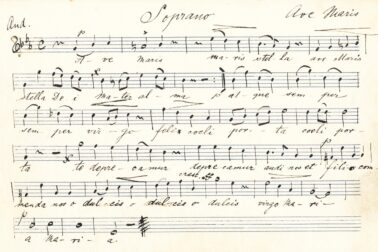 And. Soprano Ave Maris
A- ve maris maris stella ave Maris
stella De i mater alma at que sem per
sem per vir- go felix coeli por- ta coeli por-
ta te depre- camur depre camur audi nos et filio com
cresc.
menda nos o dulcis o dulcis o dulcis virgo Ma- ri-
a Ma- ri- a.